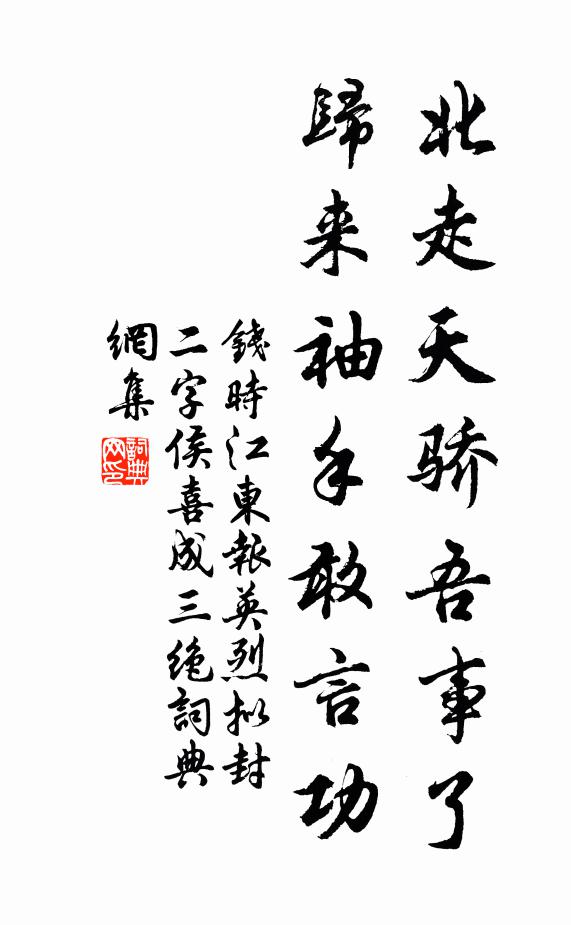 北走天骄吾事了
歸来袖手敢言功
錢時江東報英烈拟封
二字侯喜成三绝詞典
網集
詞典网印